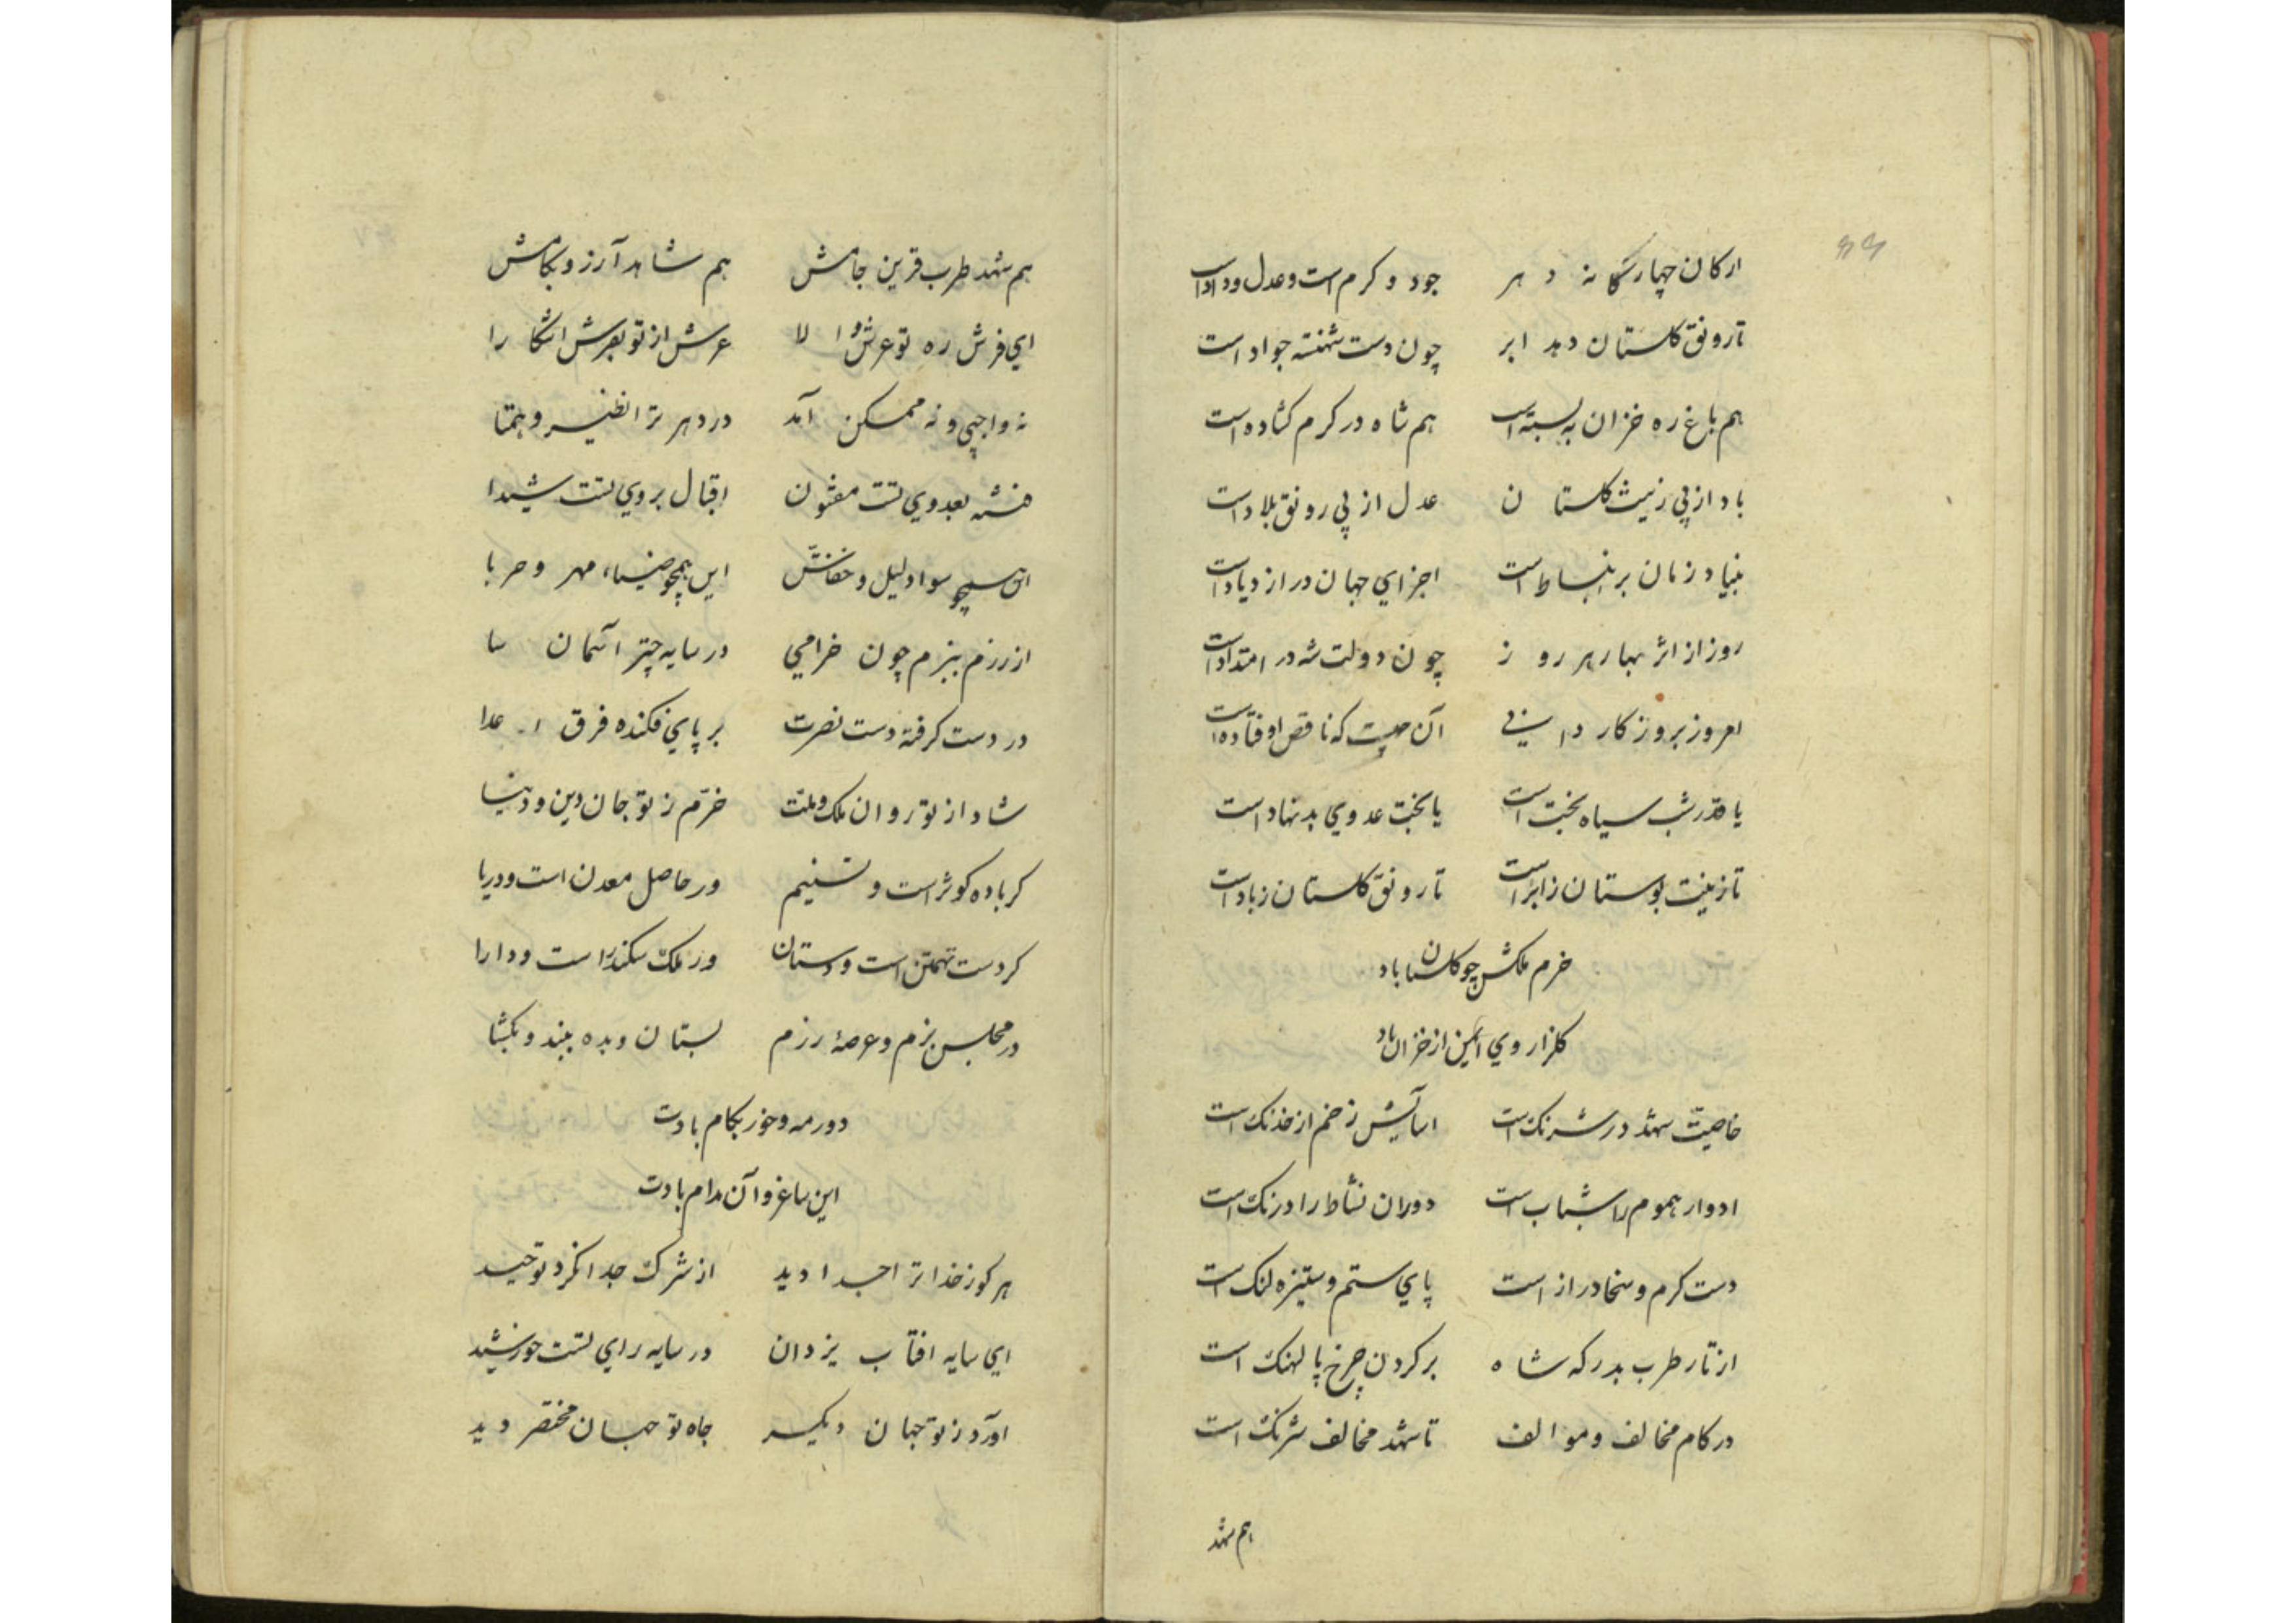 ارکان چهارگانه دهر جود و کرم است و عدل و داد است
تا رونق گلستان دهد ابر چون دست شهنشه جواد است
هم باغ ره خزان به بسته است هم شاه در کرم گشاده است
باد از پی زینت گلستان عدل از پی رونق بلاد است
بنیاد زمان بر انبساط است اجزای جهان در ازدیاد است
روز از اثر بهار هر روز چون دولت شه در امتداد است
امروز بروزگار دانی آن چیست که ناقص اوفتاده است
یا قدر شب سیاه بخت است یا بخت عدوی بدنهاد است
تا زینت بوستان ز ابر است تا رونق گلستان ز باد است
خرم ملکش چو گلستان باد
گلزار وی ایمن از خزان باد
خاصیت شهد در شرنگ است آسایش زخم از خدنگ است
ادوار هموم را شتاب است دوران نشاط را درنگ است
دست کرم و سخا دراز است پای ستم و ستیزه لنگ است
از تار طرب بدرگه شاه بر گردن چرخ پالهنگ است
در کام مخالف و موالف تا شهد مخالف شرنگ است
هم شهد
هم شهد طرب قرین جامش هم شاهد آرزو بکامش
ای فرش ره تو عرش والا عرش از تو بفرش اتکا را
نه واجبی و نه ممکن آمد در دهر ترا نظیر و همتا
فتنه بعدوی تست مفتون اقبال بروی تست شیدا
آن همچو سواد لیل و خفاش این همچو ضیاء مهر و حربا
از رزم ببزم چون خرامی در سایه چتر آسمان سا
در دست گرفته دست نصرت بر پای فکنده فرق اعدا
شاد از تو روان ملک و ملت خرّم ز تو جان دین و دنیا
گر باده کوثر است و تسنیم ور حاصل معدن است و دریا
گر دست تهمتن است و دستان ور ملک سکندر است و دارا
در مجلس بزم و عرصهٔ رزم بستان و بده ببند و بگشا
دور مه و خور بکام بادت
این ساغر و آن مدام بادت
هر کو ز خدا ترا جدا دید از شرک جدا نکرد توحید
ای سایه افتاب یزدان در سایه رای تست خورشید
آورد ز تو جهان دیگر جاه تو جهان مختصر دید